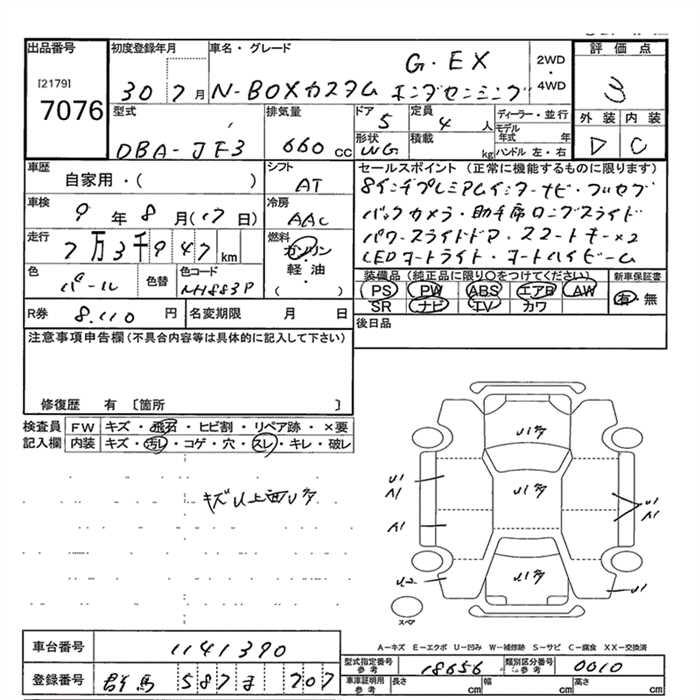 出品番号
[2179]
7076
初度登録年月
30 7月
車名・グレード
G・EX
N-BOXカスタム ホンダセンシング
2WD
・
4WD
評価点
3
外装 内装
D C
型式
DBA-JF3
排気量
660 cc
ドア
5
定員
4 人
ディーラー・並行
モデル年式 年
形状
WG
積載
kg
ハンドル 左・右
車歴
自家用・( )
シフト
AT
セールスポイント (正常に機能するものに限ります)
8インチプレミアムインターナビ・フルセグ
バックカメラ・助手席ロングスライド
パワースライドドア・スマートキー×2
LEDオートライト・オートハイビーム
車検
9年8月(17日)
冷房
AAC
走行
7万3千947km
燃料
ガソリン
・
軽油
・
( )
色
パール
色替
色コード
NH883P
装備品 (純正品に限り○をつけてください)
PS PW ABS エアB AW
SR ナビ TV カワ
新車保証書
有・無
R券 8.110 円
名変期限 月 日
後日品
注意事項申告欄 (不具合内容等は具体的に記入して下さい)
修復歴 有 〔箇所 〕
検査員 FW キズ・飛石・ヒビ割・リペア跡・×要
記入欄 内装 キズ・汚れ・コゲ・穴・スレ・キレ・破レ
キズU上面Uヶ
U1ヶ
U1ヶ
U1ヶ
U1
A1
A1
U1
A1
U2
U1
スペア
A-キズ E-エクボ U-凹み W-補修跡 S-サビ C-腐食 XX-交換済
車台番号 1141390
登録番号 群馬 587 ま 707
型式指定番号
参考
18656
類別区分番号
参考
0010
車庫証明用
参考
長さ cm 幅 cm 高さ cm